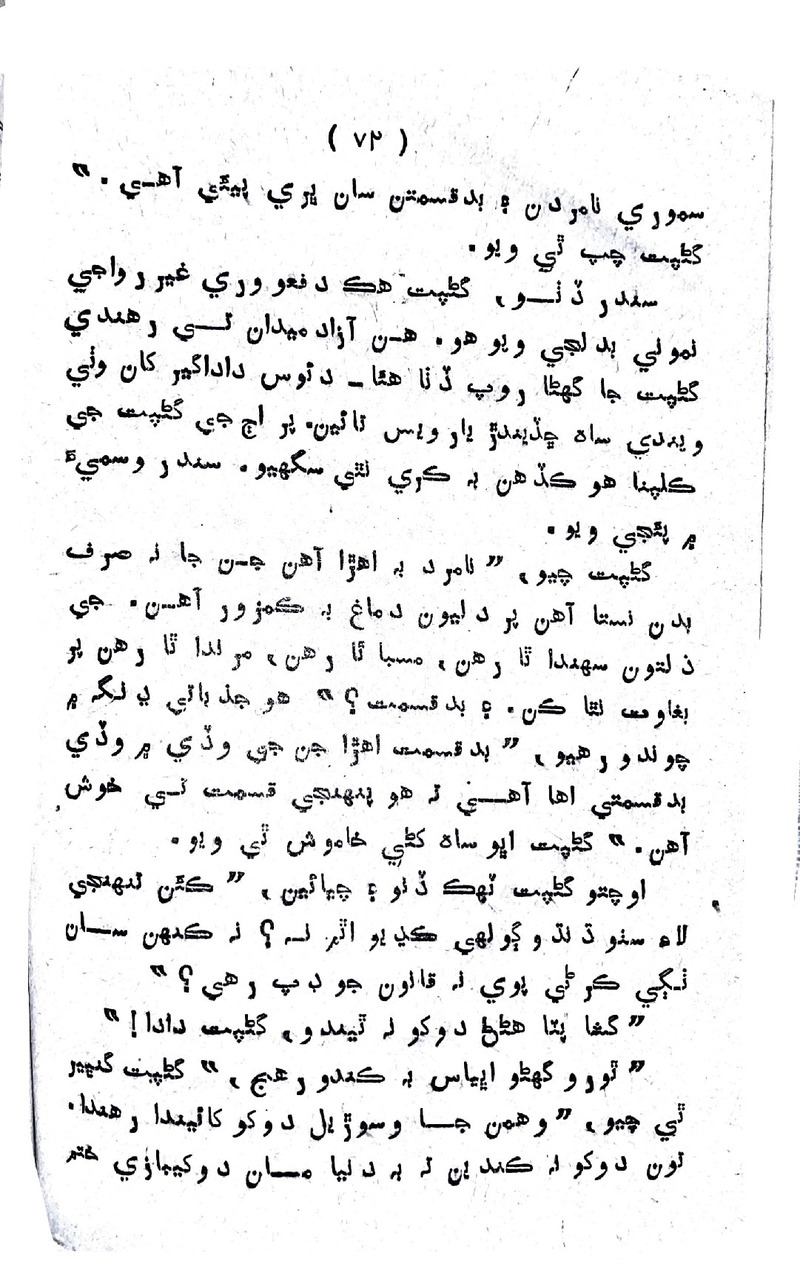 ( ٧٢ )
سموري نامردن ۽ بدقسمتن سان ڀري پيئي آهي . "
گڻپت چپ ٿي ويو.
سندر ڏٺو، گڻپت هڪ دفعو وري غير رواجي
نموني بدلجي ويو هو. هن آزاد ميدان تي رهندي
گڻپت جا گهڻا روپ ڏٺا هئا - دئوس داداگير کان وٺي
ويندي ساه ڇڏيندڙ يار ويس تائين. پر اڄ جي گڻپت جي
ڪلپنا هو ڪڏهن بہ ڪري نٿي سگهيو. سندر وسميءَ
۾ پئجي ويو.
گڻپت چيو، " نامرد بہ اهڙا آهن جن جا نہ صرف
بدن نستا آهن پر دليون دماغ بہ ڪمزور آهن. جي
ذلتون سهندا ٿا رهن، مسبا ٿا رهن، مرندا ٿا رهن پر
بغاوت نٿا ڪن. ۽ بدقسمت؟ " هو جذباتي ڍنگہ ۾
چوندو رهيو، " بدقسمت اهڙا جن جي وڏي ۾ وڏي
بدقسمتي اها آهي تہ هو پنهنجي قسمت تي خوش
آهن. " گڻپت اڀو ساه کڻي خاموش ٿي ويو.
اوچتو گڻپت ٽهڪ ڏنو ۽ چيائين، " ڪئن تنهنجي
لاءِ سٺو ڌنڌو ڳولهي ڪڍيو اٿم نہ؟ نہ ڪنهن سان
ٺڳي ڪرڻي پوي نہ قانون جو ڊپ رهي؟ "
" گشا پٽا هڻڻ دوکو نہ ٿيندو، گڻپت دادا! "
" ٿورو گهڻو اڀياس بہ ڪندو رهج، " گڻپت گنڀير
ٿي چيو، " وهمن جا وسوڙيل دوکو کائيندا رهندا.
تون دوکو نہ ڪندين تہ بہ دنيا مان دوکيبازي ختم